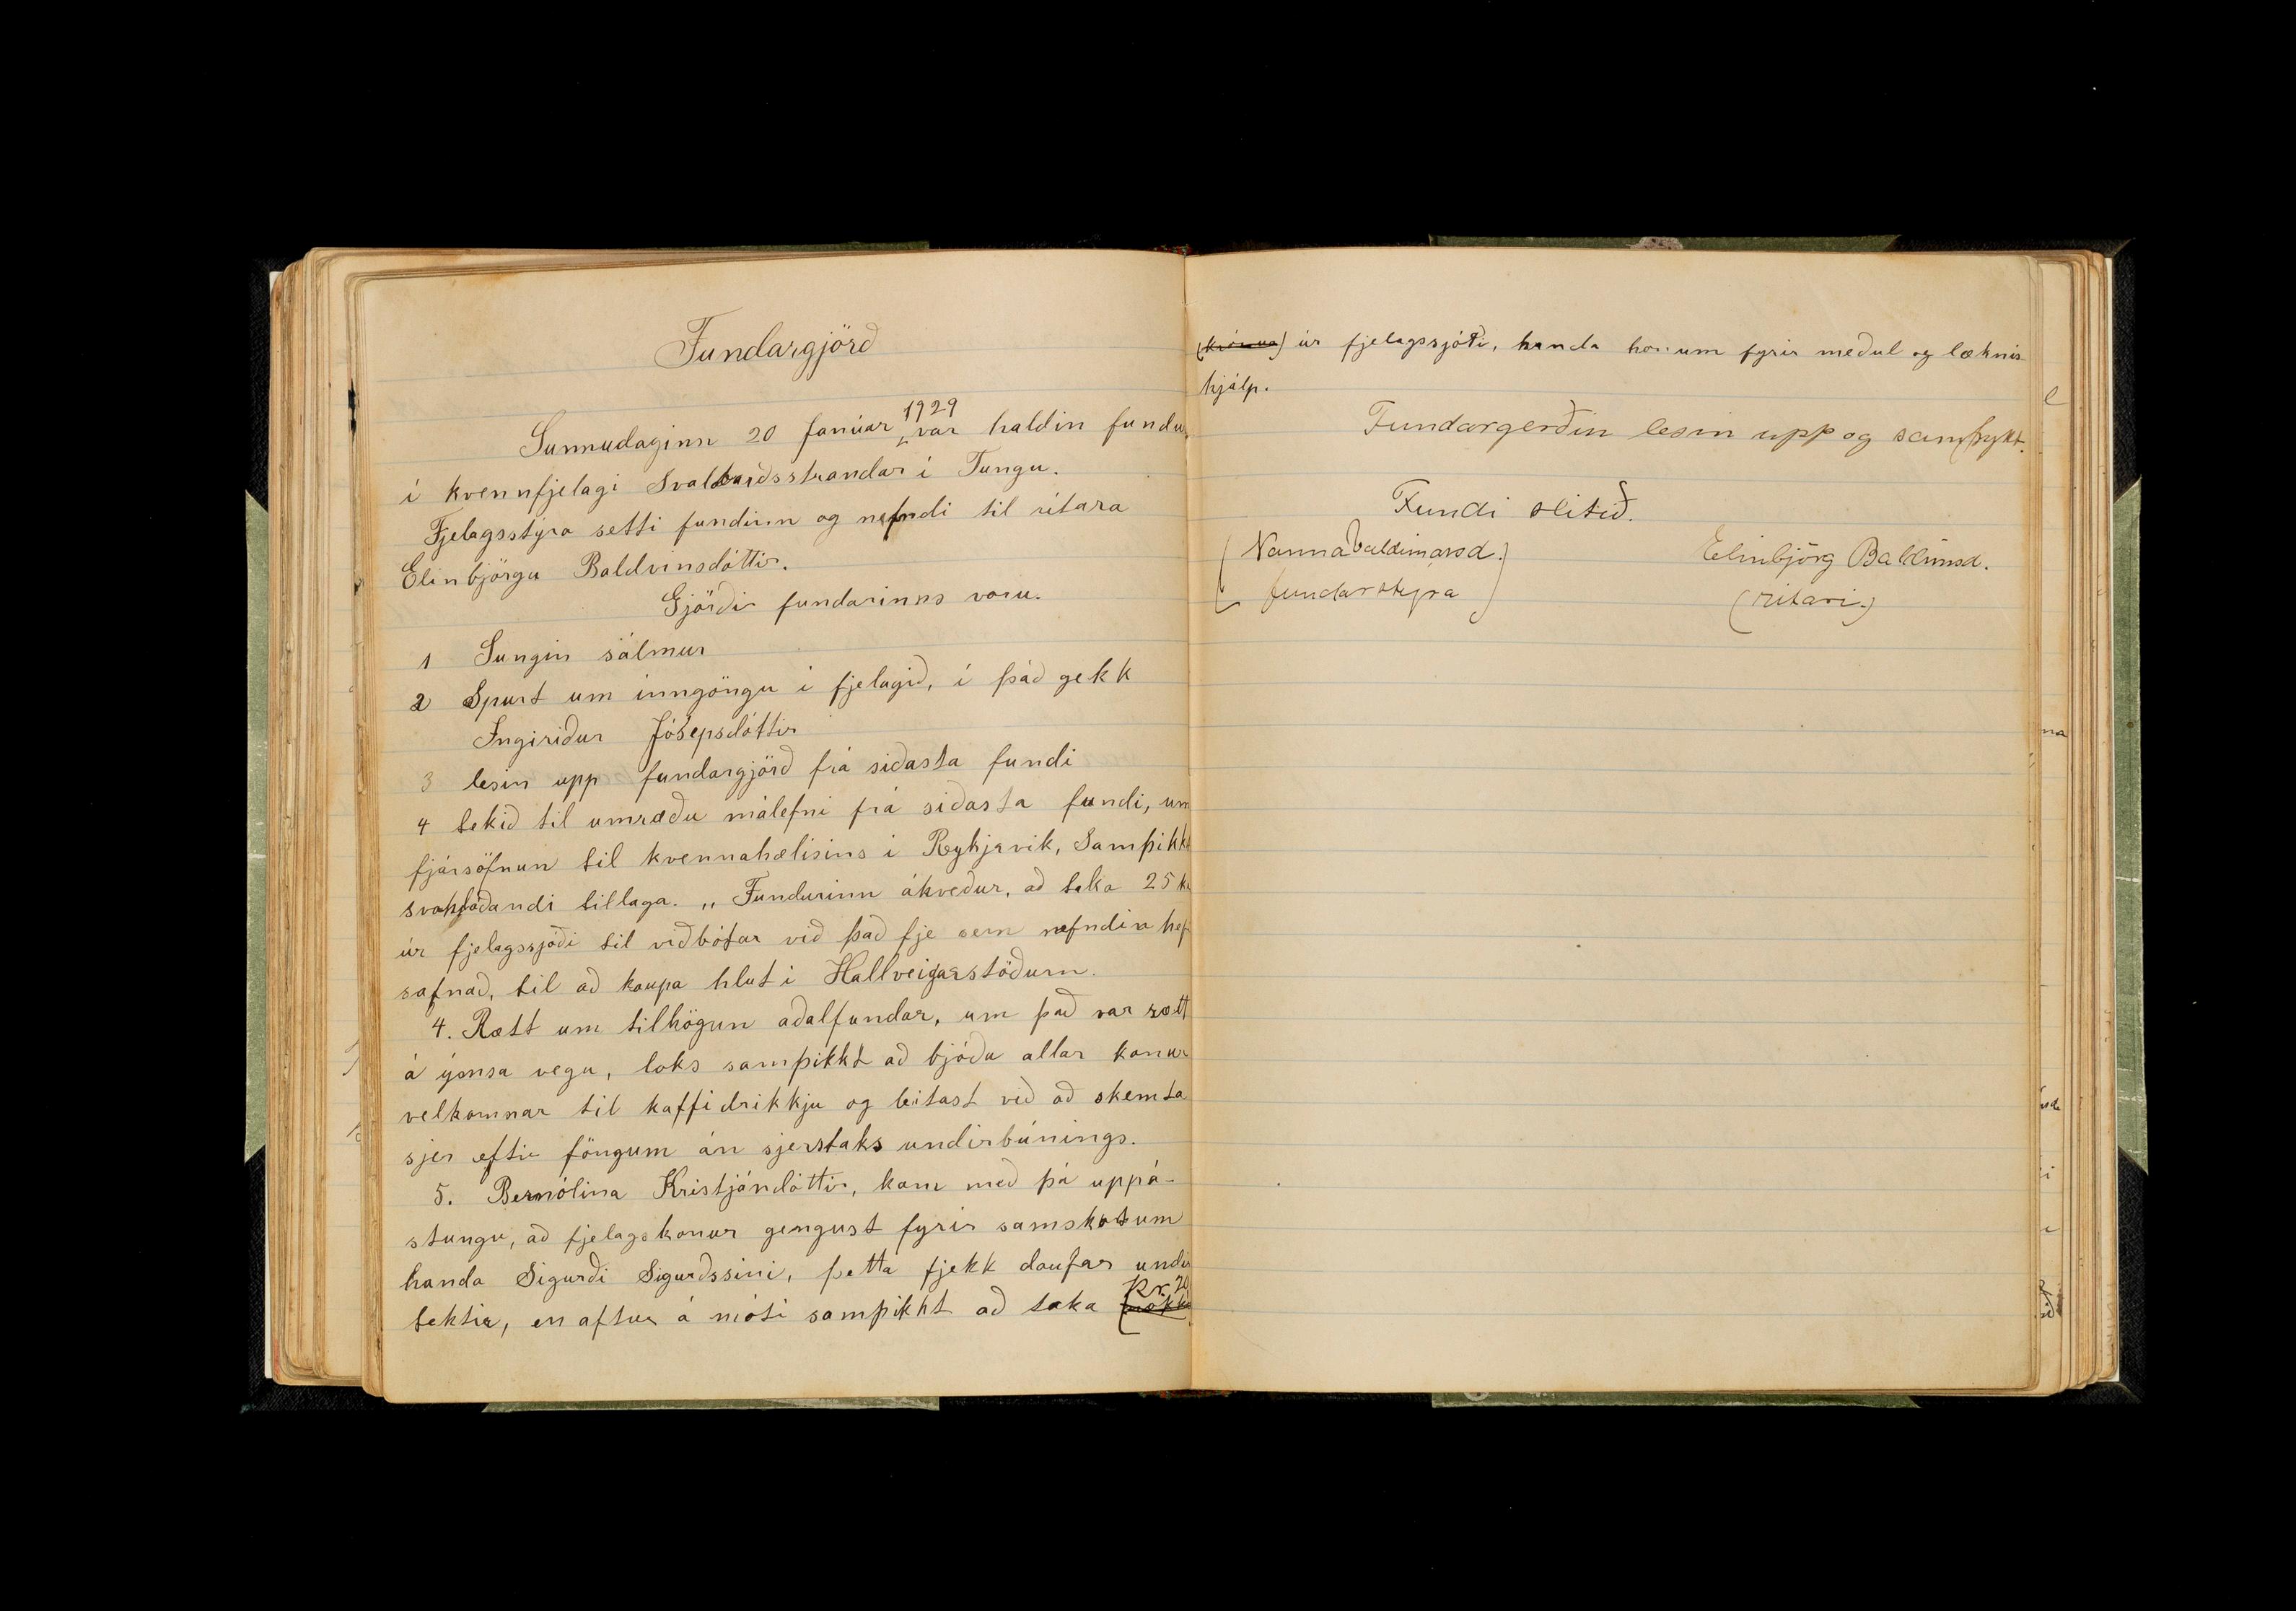 Fundargjörð
Sunnudaginn 20 Janúar 1929 var haldin fundu
í kvennfjelagi Svalbarðsstrandar í Tungu.
Fjelagsstýra setti fundinn og nefndi til ritara
Elinbjörgu Baldvinsdóttir.
Gjörðir fundarinns voru.
1 Sungin sálmur
2 Spurt um inngöngu i fjelagið, í það gekk
Ingiriður Jósepsdóttir
3 lesin upp fundargjörð frá siðasta fundi
4 tekið til umræðu málefni frá siðasta fundi, um
fjársöfnun til kvennahælisins i Reykjavik, Samþikkt
svohljóðandi tillaga. „ Fundurinn ákveður, að taka 25 kr
úr fjelagssjóði til viðbótar við það fje sem nefndin hef
safnað, til að kaupa hlut i Hallveigarstöðum.
4. Rætt um tilhögun aðalfundar, um það var rætt
á ýmsa vegu, loks samþikkt að bjóða allar konur
velkomnar til kaffidrikkju og leitast við að skemta
sjer eftir föngum án sjerstaks undirbúnings.
5. Bernólina Kristjándóttir, kom með þá uppá-
stungu, að fjelagskonur gengust fyrir samskotum
handa Sigurði Sigurðssini, þetta fjekk daufar undir
tektir, en aftur á móti samþikht að taka (nokkr Kr. 20
(krónur) úr fjelagssjóði, handa honum fyrir meðul og læknis-
hjálp.
Fundargerðin lesin upp og samþykt.
Fundi slitið.
(Nanna Valdimarsd.) Elinbjörg Baldvinsd.
fundarstýra (ritari.)